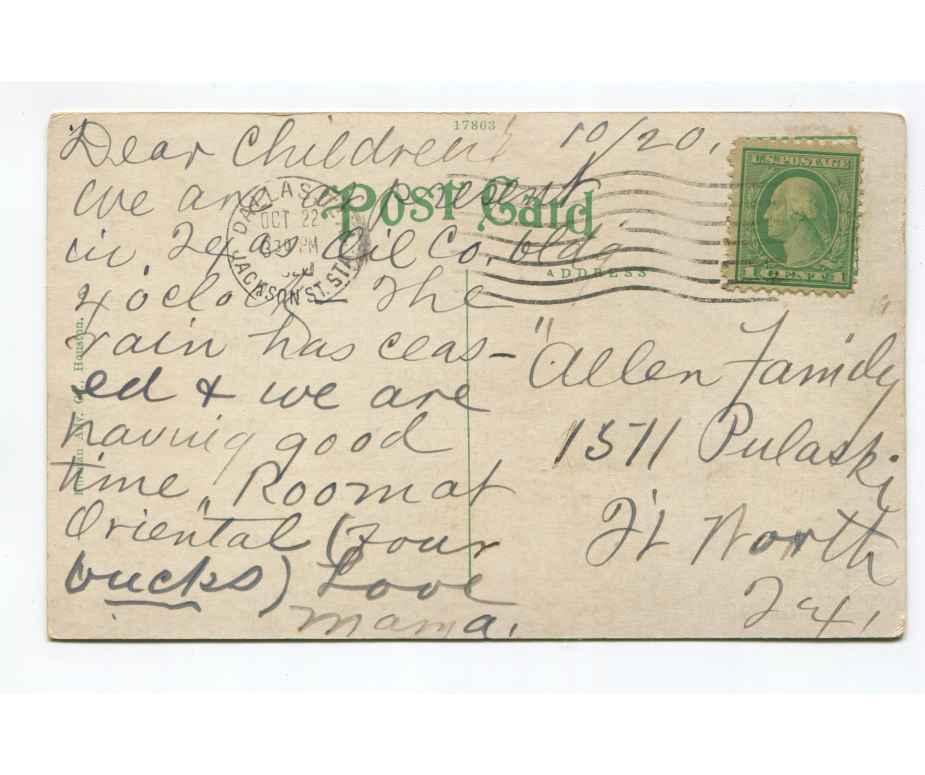 17863
Dear Children: 10/20,
We are at present
in Texas Oil Co. bldg
4 oclock The
rain has ceas-
ed & we are
having good
time, Room at
Oriental (four
bucks) Love
Mama.
Post Card
ADDRESS
U.S. POSTAGE
1 CENTS 1
DALLAS
OCT 22
PM
JACKSON ST. STA.
"Allen Family
1511 Pulaski
Ft Worth
Tex.
Houston.